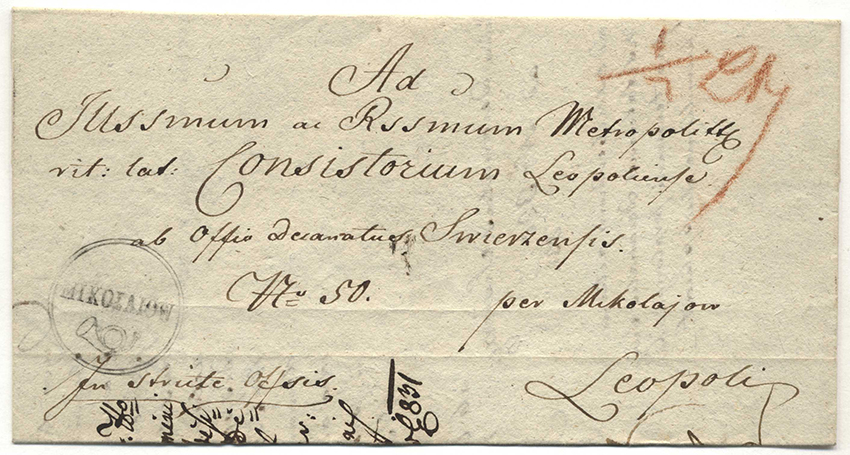 Ad
Illssmum ac Rssmum Metropolittæ
rit: lat: Consistorium Leopoliense
ab Offio Decanatus Swierzensis.
No 50. per Mikolajow
MIKOŁAIOW
In stricte Offsis. Leopoli
1831